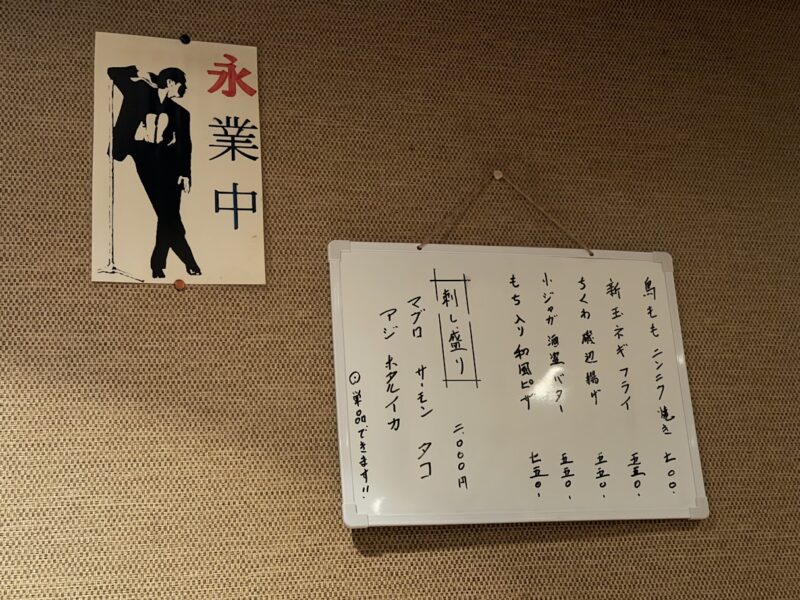 永業中
鳥もも ニンニク焼き 七00.
新玉ネギフライ 五五0.
ちくわ磯辺揚げ 五五0.
小ジャガ 海塩バター 五五0.
もち入り 和風ピザ 七五0.
刺し盛り 二.000円
マグロ サーモン タコ
アジ ホタルイカ
◎単品できます!!